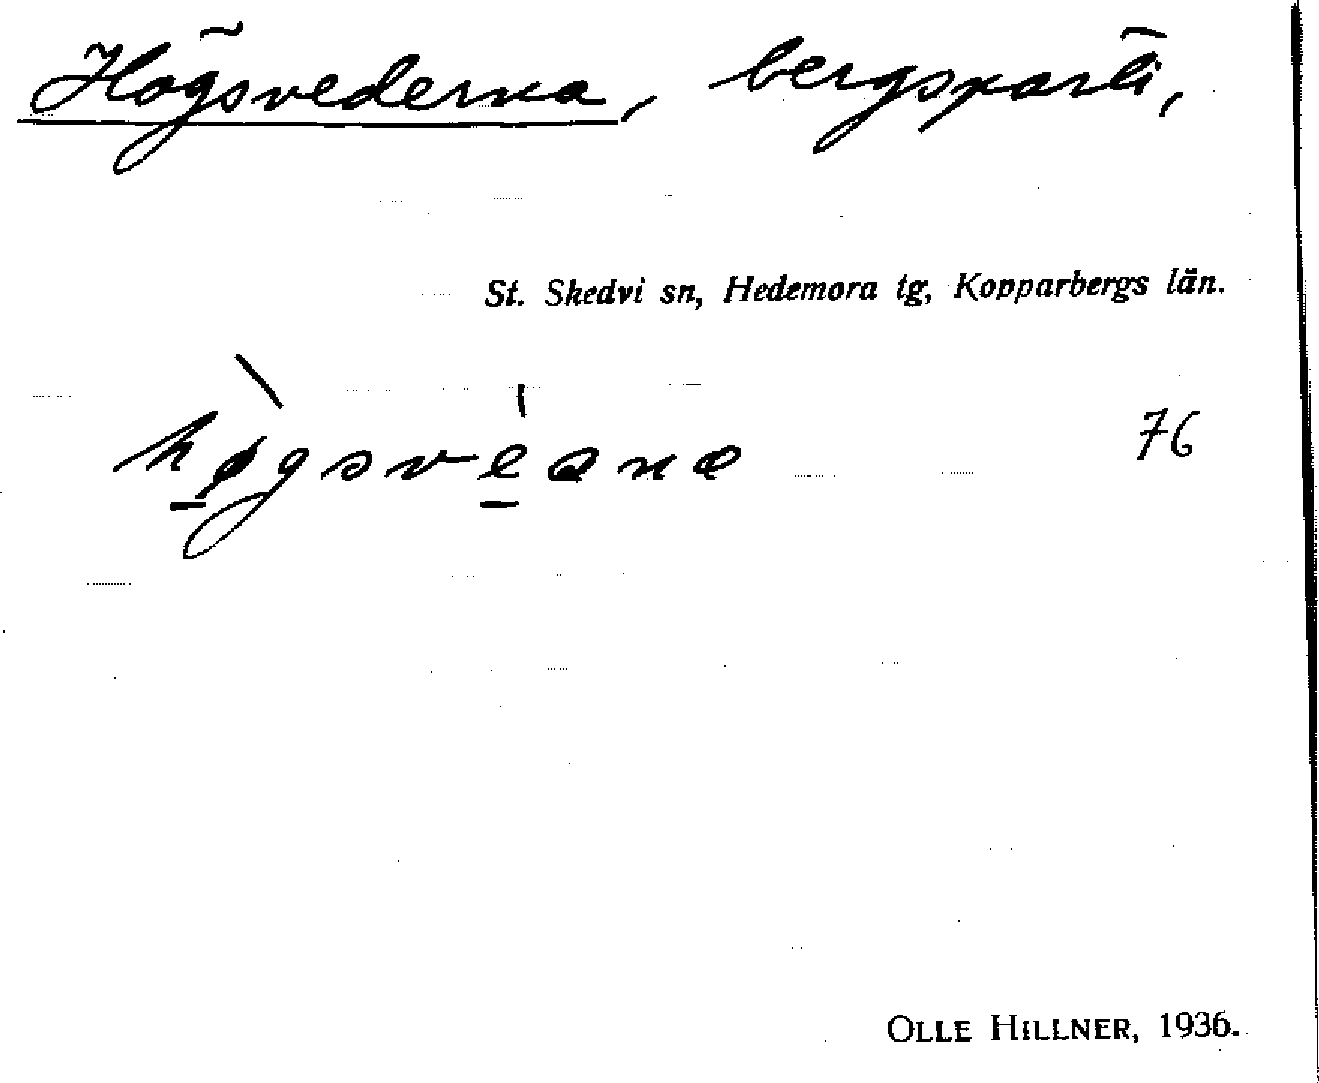 Högsvederna, bergsparti,
St. Skedvi sn, Hedemora tg, Kopparbergs län.
høgsveana 76
OLLE HILLNER, 1936.